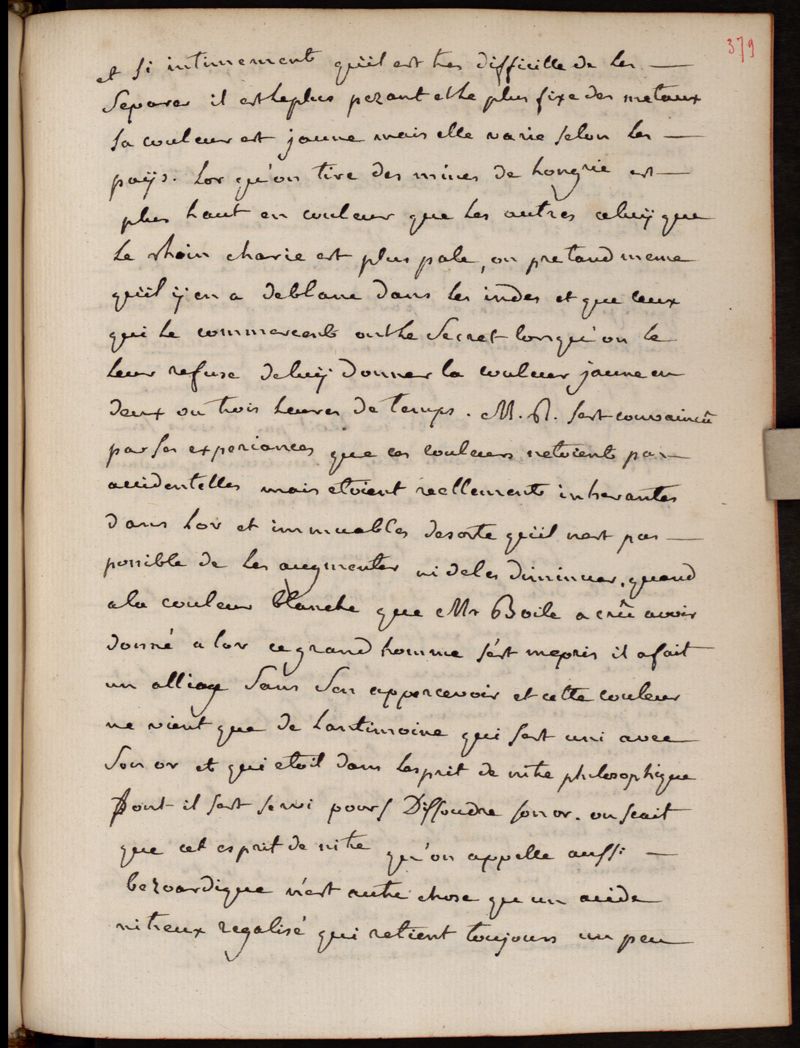 379
et si intimement qu'il est tres difficille de les —
separer il est le plus pezant et le plus fixe des metaux
sa couleur est jaune mais elle varie selon les —
païs. Lor qu'on tire des mines de hongrie est —
plus haut en couleur que les autres celuÿ que
le rhoin charie est plus pale, on pretand meme
qu'il ÿ en a de blanc dans les indes et que ceux
qui le commercent ont le secret lorsqu'on le
leur refuse de luÿ donner la couleur jaune en
deux ou trois heures de temps. M. R. sest convaincû
par ses experiances que ces couleurs netoient pas —
accidentelles mais etoient reellements inherantes
dans Lor et immuables desorte qu'il nest pas —
possible de les augmenter ni de les diminuer. quand
a la couleur blanche que Mr Boile a crû avoir
donné a lor ce grand homme s'est mepris il a fait
un alliage sans s'en appercevoir et cette couleur
ne vient que de Lantimoine qui sest uni avec
son or et qui etoit dans lesprit de nitre philosophique
Dont il sest servi pour Dissoudre son or. on scait
que cet esprit de nitre qu'on appelle aussi —
bezoardique n'est autre chose que un acide
nitreux regalisé qui retient toujours un peu